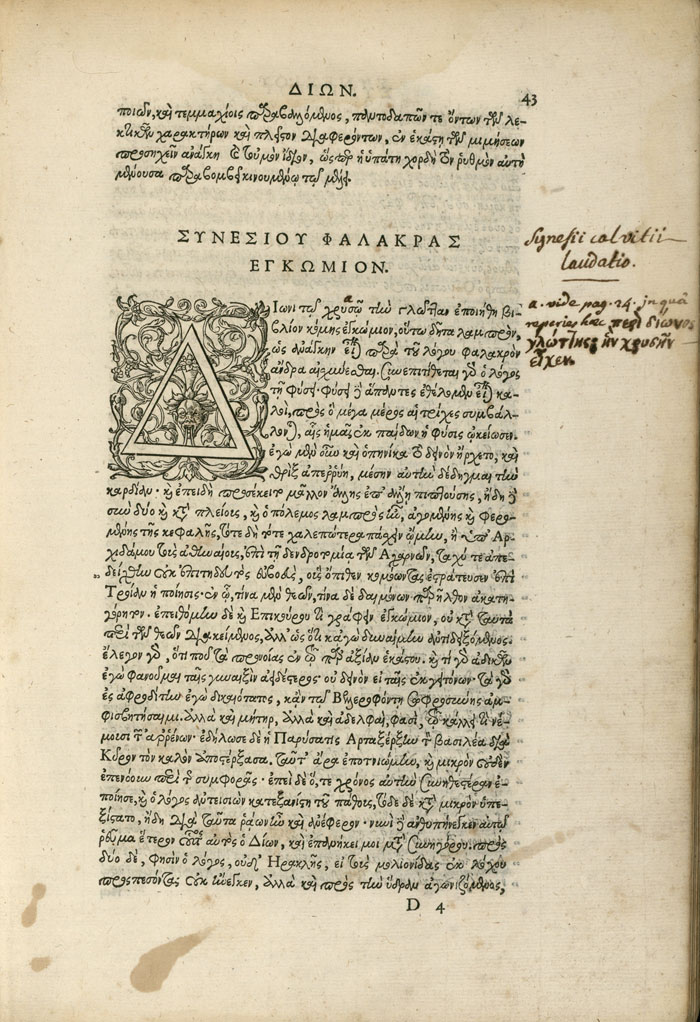 ΔΙΩΝ.
43
ποιῶν, καὶ τεμμαχίοις παραβαλλόμενος, παντοδαπῶν τε ὄντων τῶν λε-
κτικῶν χαρακτήρων καὶ πλεῖστον διαφερόντων, ἐν ἑκάστῃ τῶν μιμήσεων
προσηχεῖν ἀνάγκη καὶ τοὐμὸν ἴδιον, ὥσπερ ἡ ὑπάτη χορδὴ τὸν ῥυθμὸν αὐτὸ
μένουσα
ΣΥΝΕΣΙΟΥ ΦΑΛΑΚΡΑΣ
ΕΓΚΩΜΙΟΝ.
Synesii calvitii
laudatio.
a. vide pag. 24. in quâ
reperies hæc περὶ δίωνος
γλώττης ἣν χρυσῆν
εἶχεν.
Δίωνι τῷ χρυσῷ τὴν γλῶτταν ἐποιήθη βι-
βλίον κόμης ἐγκώμιον, οὕτω δῆτα λαμπρὸν,
ὡς ἀνάγκην εἶναι παρὰ τοῦ λόγου φαλακρὸν
ἄνδρα αἰσχύνεσθαι. συνεπιτίθεται γὰρ ὁ λόγος
τῇ φύσει· φύσει δὲ ἅπαντες ἐθέλομεν εἶναι κα-
λοὶ, πρὸς ὃ μέγα μέρος αἱ τρίχες συμβάλ-
λονται, αἷς ἡμᾶς ἐκ παίδων ἡ φύσις ᾠκείωσεν.
ἐγὼ μὲν οὖν καὶ ὁπηνίκα τὸ δεινὸν ἤρχετο, καὶ
θρὶξ ἀπερρύη, μέσην αὐτὴν δέδηγμαι τὴν
καρδίαν· καὶ ἐπειδὴ προσέκειτο μᾶλλον ἄλλης ἐπ' ἄλλῃ πιπτούσης, ἤδη δὲ
σὺν δύο καὶ κατὰ πλείους, καὶ ὁ πόλεμος λαμπρὸς ἦν, ἀγομένης καὶ φερο-
μένης τῆς κεφαλῆς, τότε δὴ τότε χαλεπώτερα πάσχειν ᾤμην, ἢ ὑπ' Ἀρ-
χιδάμου τοὺς ἀθηναίους, ἐπὶ τῇ δενδροτομίᾳ τῶν Ἀχαρνῶν, ταχύ τε ἀπε-
δείχθην οὐκ ἐπιτηδευτὸς εὐβοεὺς, οὓς ὄπιθεν κομόωντας ἐστράτευσεν ἐπὶ
Τροίαν ἡ ποίησις· ἐν ᾧ, τίνα μὲν θεῶν, τίνα δὲ δαιμόνων παρῆλθον ἀκατη-
γόρητον. ἐπεθέμην δὲ καὶ Ἐπικούρου τι γράφειν ἐγκώμιον, οὐ κατὰ ταὐτὰ
περὶ τῶν θεῶν διακείμενος, ἀλλ' ὡς ὅτι κἀγὼ δυναίμην ἀντιδηξόμενος.
ἔλεγον γὰρ, ὅτι ποῦ τὰ προνοίας ἐν τῷ παρ' ἀξίαν ἑκάστου. καὶ τί γὰρ ἀδικῶν
ἐγὼ φανοῦμαι ταῖς γυναιξὶν ἀειδέστερος· οὐ δεινὸν εἰ ταῖς ἐκ γειτόνων· τὰ γὰρ
ἐς ἀφροδίτην ἐγὼ δικαιότατος, κἂν τῷ Βελλεροφόντῃ σωφροσύνης ἀμ-
φισβητήσαιμι. ἀλλὰ καὶ μήτηρ, ἀλλὰ καὶ ἀδελφαὶ, φασὶ, τῷ κάλλει τι νέ-
μουσι τῶν ἀρρένων· ἐδήλωσε δὲ ἡ Παρύσατις Ἀρταξέρξην τὸν βασιλέα διὰ
Κῦρον τὸν καλὸν ἀποστέρξασα. ταῦτ' ἄρα ἐποτνιώμην, καὶ μικρὸν οὐδὲν
ἐπενόουν περὶ τῆς συμφορᾶς· ἐπεὶ δὲ ὅ, τε χρόνος αὐτὴν συνηθεστέραν ἐ-
ποίησε, καὶ ὁ λόγος ἀντεισιὼν κατεξανέστη τοῦ πάθους, τὸ δὲ κατὰ μικρὸν ὑπε-
ξίστατο, ἤδη διὰ ταῦτα ῥᾴων ἦν καὶ ἀνέφερον· νυνὶ δὲ ἀνθυπήνεγκεν αὐτὸ
ῥεῦμα ἕτερον οὗτος αὐτὸς ὁ Δίων, καὶ ἐπανήκει μοι μετὰ συνηγόρου. πρὸς
δύο δὲ, φησὶν ὁ λόγος, οὐδ' Ἡρακλῆς, εἰ τοὺς μολιονίδας ἐκ λόχου
προσπεσόντας οὐκ ἤνεγκεν, ἀλλὰ καὶ πρὸς τὴν ὕδραν ἀγωνιζόμενος,
D 4